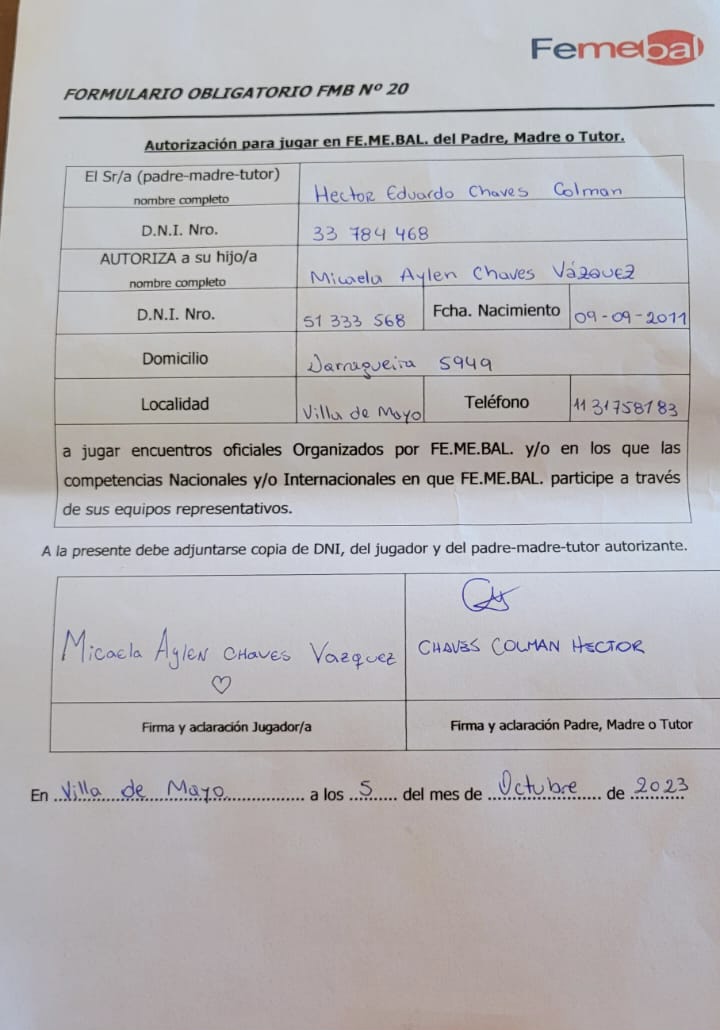 Femebal
FORMULARIO OBLIGATORIO FMB Nº 20
Autorización para jugar en FE.ME.BAL. del Padre, Madre o Tutor.
El Sr/a (padre-madre-tutor)
nombre completo
Hector Eduardo Chaves Colman
D.N.I. Nro.
33 784 468
AUTORIZA a su hijo/a
nombre completo
Micaela Aylen Chaves Vázquez
D.N.I. Nro.
51 333 568
Fcha. Nacimiento
09-09-2011
Domicilio
Darragueira 5949
Localidad
Villa de Mayo
Teléfono
11 31758183
a jugar encuentros oficiales Organizados por FE.ME.BAL. y/o en los que las
competencias Nacionales y/o Internacionales en que FE.ME.BAL. participe a través
de sus equipos representativos.
A la presente debe adjuntarse copia de DNI, del jugador y del padre-madre-tutor autorizante.
Micaela Aylen Chaves Vazquez
CHAVES COLMAN HECTOR
Firma y aclaración Jugador/a
Firma y aclaración Padre, Madre o Tutor
En Villa de Mayo a los 5 del mes de Octubre de 2023